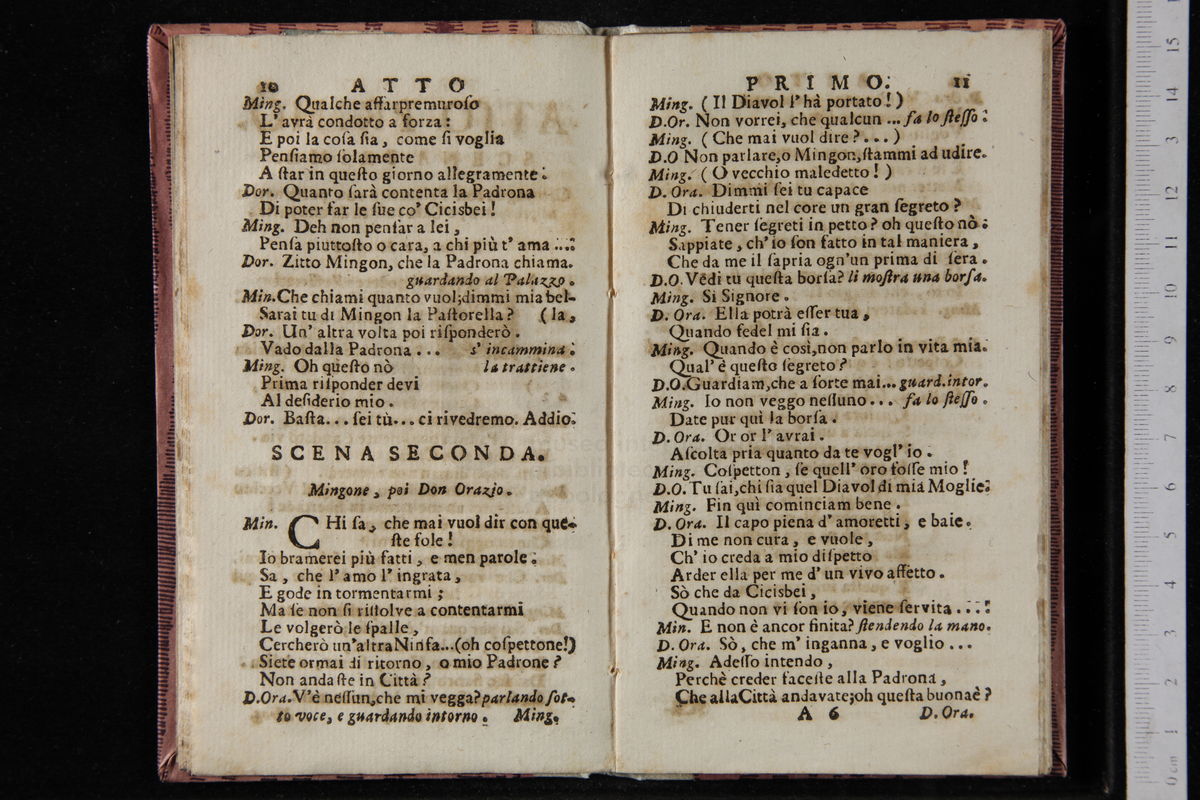 10 ATTO
Ming. Qualche affar premuroſo
L' avrà condotto a forza:
E poi la coſa ſia, come ſi voglia
Penſiamo ſolamente
A ſtar in queſto giorno allegramente.
Dor. Quanto ſarà contenta la Padrona
Di poter far le ſue co' Cicisbei!
Ming. Deh non penſar a lei,
Penſa piuttoſto o cara, a chi più t' ama ....
Dor. Zitto Mingon, che la Padrona chiama.
guardando al Palazzo.
Min. Che chiami quanto vuol; dimmi mia bel-
Sarai tu di Mingon la Paſtorella? (la,
Dor. Un' altra volta poi riſponderò.
Vado dalla Padrona ... s' incammina.
Ming. Oh queſto nò la trattiene.
Prima riſponder devi
Al deſiderio mio.
Dor. Baſta... ſei tù... ci rivedremo. Addio.
SCENA SECONDA.
Mingone, poi Don Orazio.
Min. CHi ſa, che mai vuol dir con que-
ſte fole!
Io bramerei più fatti, e men parole.
Sa, che l' amo l' ingrata,
E gode in tormentarmi;
Ma ſe non ſi riſolve a contentarmi
Le volgerò le ſpalle,
Cercherò un'altra Ninfa...(oh coſpettone!)
Siete ormai di ritorno, o mio Padrone?
Non andaſte in Città?
D.Ora. V'è neſſun, che mi vegga? parlando ſot-
to voce, e guardando intorno. Ming.
PRIMO. 11
Ming. (Il Diavol l' hà portato!)
D.Or. Non vorrei, che qualcun ... fa lo ſteſſo.
Ming. (Che mai vuol dire?...)
D.O Non parlare, o Mingon, ſtammi ad udire.
Ming. (O vecchio maledetto!)
D. Ora. Dimmi ſei tu capace
Di chiuderti nel core un gran ſegreto?
Ming. Tener ſegreti in petto? oh queſto nò.
Sappiate, ch' io ſon fatto in tal maniera,
Che da me il ſapria ogn'un prima di ſera.
D.O. Vedi tu queſta borſa? li moſtra una borſa.
Ming. Si Signore.
D. Ora. Ella potrà eſſer tua,
Quando fedel mi ſia.
Ming. Quando è così, non parlo in vita mia.
Qual' è queſto ſegreto?
D.O. Guardiam, che a ſorte mai... guard. intor.
Ming. Io non veggo neſſuno... fa lo ſteſſo.
Date pur quì la borſa.
D. Ora. Or or l' avrai.
Aſcolta pria quanto da te vogl' io.
Ming. Coſpetton, ſe quell' oro foſſe mio!
D.O. Tu ſai, chi ſia quel Diavol di mia Moglie.
Ming. Fin quì cominciam bene.
D. Ora. Il capo piena d' amoretti, e baie.
Di me non cura, e vuole,
Ch' io creda a mio diſpetto
Arder ella per me d' un vivo affetto.
Sò che da Cicisbei,
Quando non vi ſon io, viene ſervita ....
Min. E non è ancor finita? ſtendendo la mano.
D. Ora. Sò, che m' inganna, e voglio ...
Ming. Adeſſo intendo,
Perchè creder faceſte alla Padrona,
Che alla Città andavate; oh queſta buona è?
A 6 D. Ora.